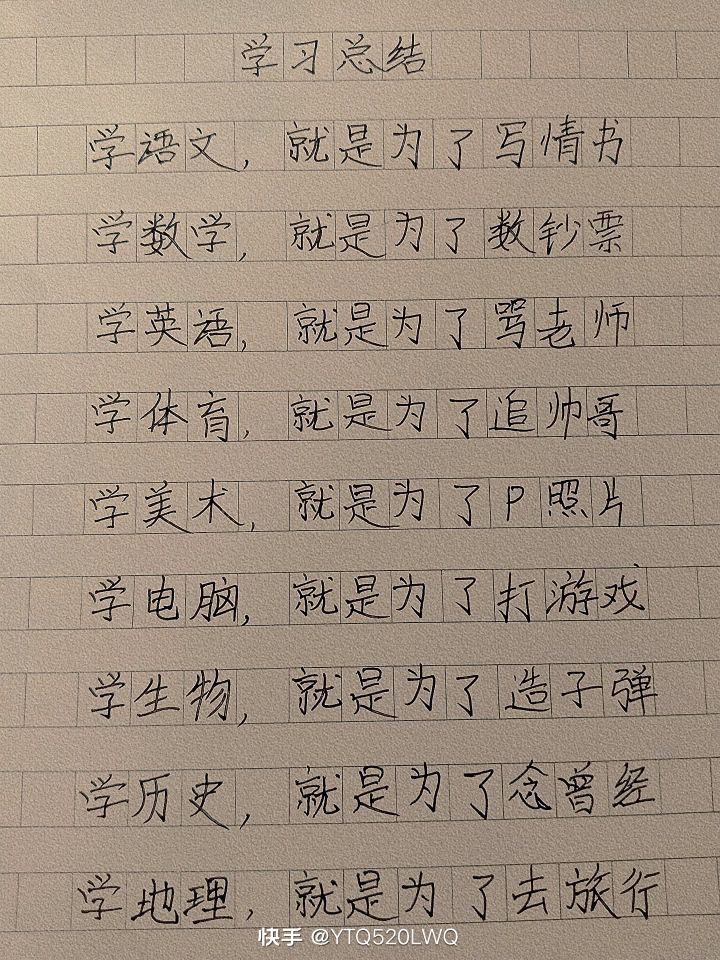 学习总结
学语文，就是为了写情书
学数学，就是为了数钞票
学英语，就是为了骂老师
学体育，就是为了追帅哥
学美术，就是为了P照片
学电脑，就是为了打游戏
学生物，就是为了造子弹
学历史，就是为了念曾经
学地理，就是为了去旅行
快手 @YTQ520LWQ